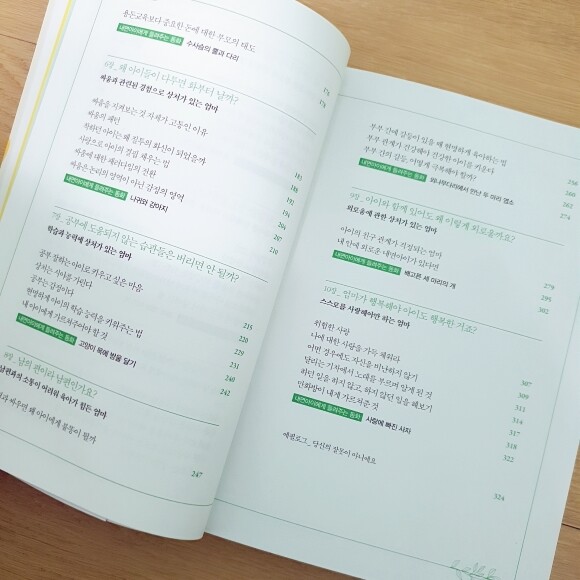 용돈교육보다 중요한 돈에 대한 부모의 태도
내면아이에게 들려주는 동화 수사슴의 뿔과 다리
174
178
6장_ 왜 아이들이 다투면 화부터 날까?
싸움과 관련된 경험으로 상처가 있는 엄마
싸움을 지켜보는 것 자체가 고통인 이유
싸움의 패턴
착하던 아이는 왜 질투의 화신이 되었을까
사랑으로 아이의 결핍 채우는 법
싸움에 대한 패러다임의 전환
싸움은 논리의 영역이 아닌 감정의 영역
내면아이에게 들려주는 동화 나귀와 강아지
185
188
192
194
204
207
210
7장_ 공부에 도움되지 않는 습관들은 버리면 안 될까?
학습과 능력에 상처가 있는 엄마
공부 잘하는 아이로 키우고 싶은 마음
상처는 시야를 가린다
공부는 감정이다
현명하게 아이의 학습 능력을 키워주는 법
내 아이에게 가르쳐주어야 할 것
내면아이에게 들려주는 동화 고양이 목에 방울 달기
215
220
229
231
240
242
8장_ 남의 편이라 남편인가요?
남편과의 소통이 어려워 육아가 힘든 엄마
싸우면 왜 아이에게 불똥이 튈까
247
부부 간에 갈등이 있을 때 현명하게 육아하는 법
부부 관계가 건강해야 건강한 아이를 키운다
부부 간의 갈등, 어떻게 극복해야 할까?
내면아이에게 들려주는 동화 외나무다리에서 만난 두 마리 염소
250
260
262
274
9장_ 아이와 함께 있어도 왜 이렇게 외로울까요?
외로움에 관한 상처가 있는 엄마
아이의 친구 관계가 걱정되는 엄마
내 안에 외로운 내면아이가 있다면
내면아이에게 들려주는 동화 배고픈 세 마리의 개
279
295
302
10장_ 엄마가 행복해야 아이도 행복한 거죠?
스스로를 사랑해야만 하는 엄마
위험한 사랑
나에 대한 사랑을 가득 채워라
어떤 경우에도 자신을 비난하지 말기
달리는 기차에서 노래를 부르며 알게 된 것
하던 일을 하지 않고, 하지 않던 일을 해보기
만화방이 내게 가르쳐준 것
내면아이에게 들려주는 동화 사랑에 빠진 사자
307
309
311
314
317
318
322
에필로그_ 당신의 잘못이 아니에요
324